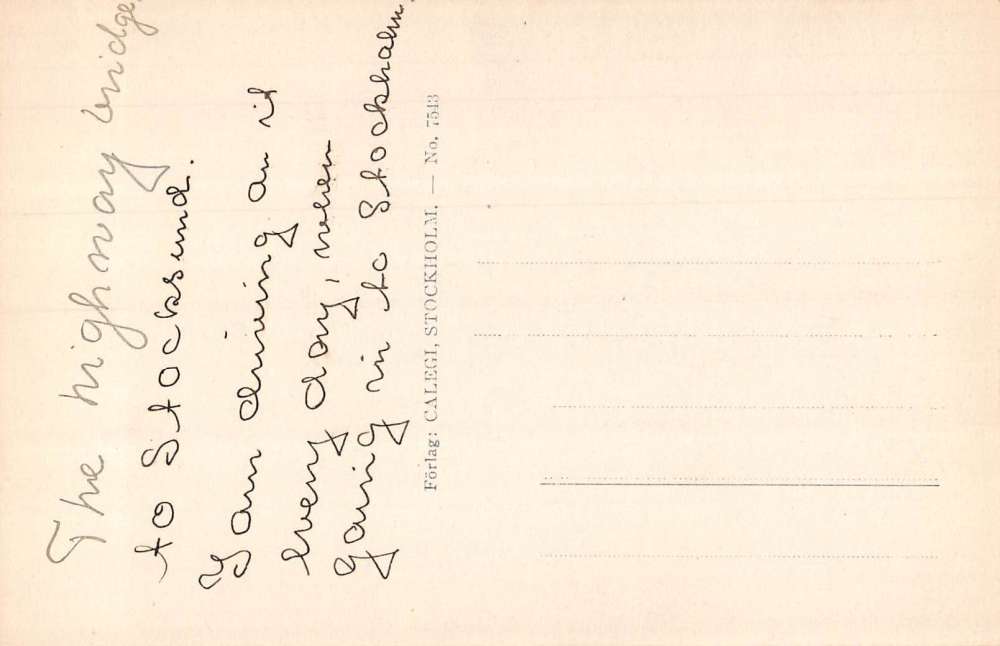 The highway bridge
to Stocksund.
I am driving on it
every day, when
going in to Stockholm.
Förlag: CALEGI, STOCKHOLM. — No. 7543